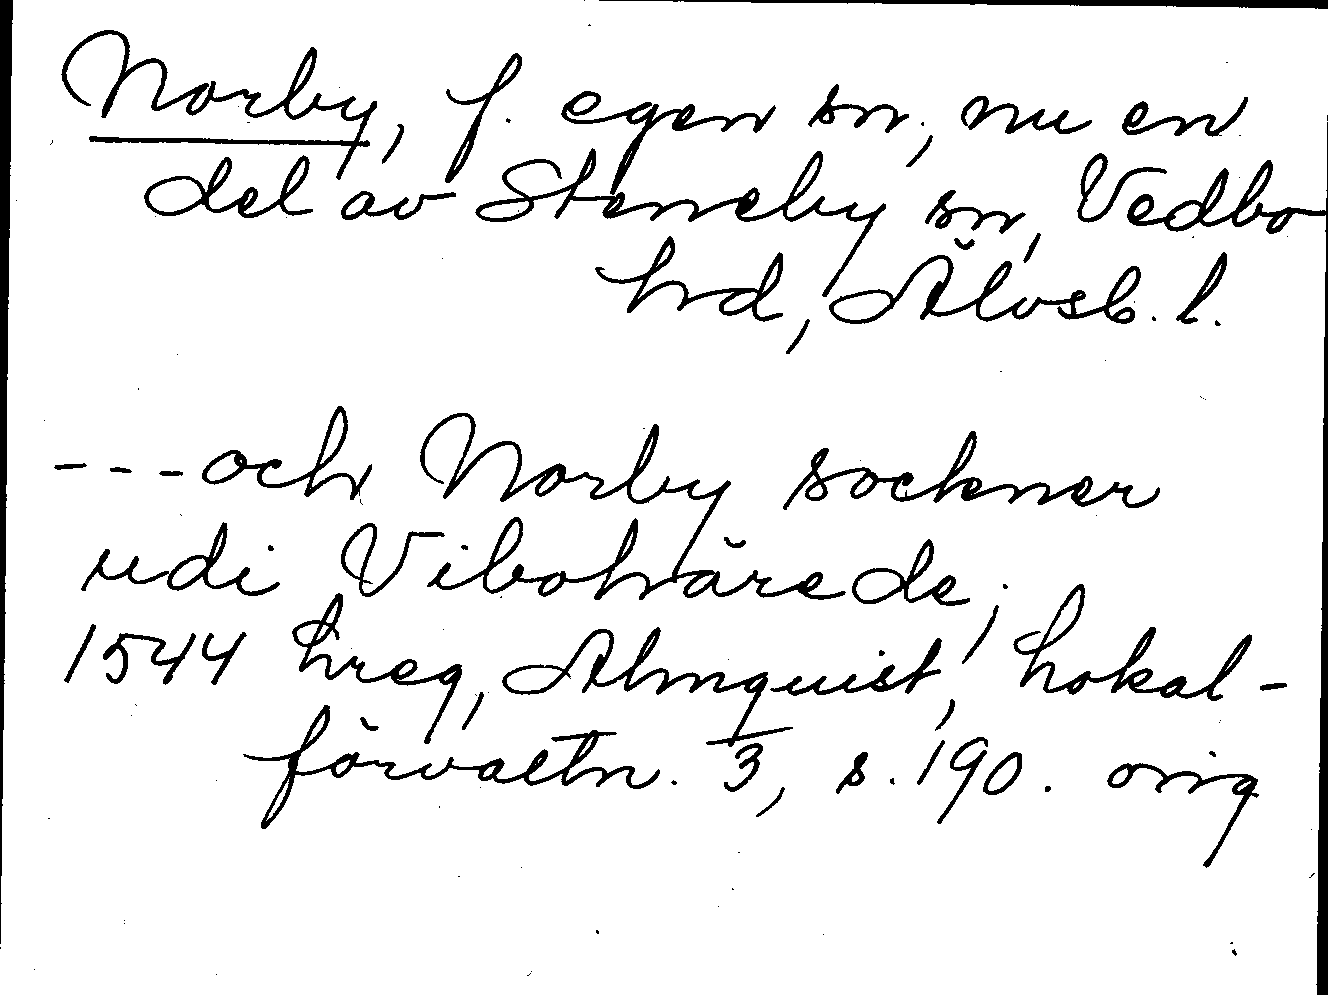 Norby, f. egen sn, nu en
del av Steneby sn, Vedbo
hd, Älvsb. l.
---och Norby sockner
udi Vibohärede,
1544 hreg, Almquist, Lokal-
förvaltn. 3, s. 190. orig